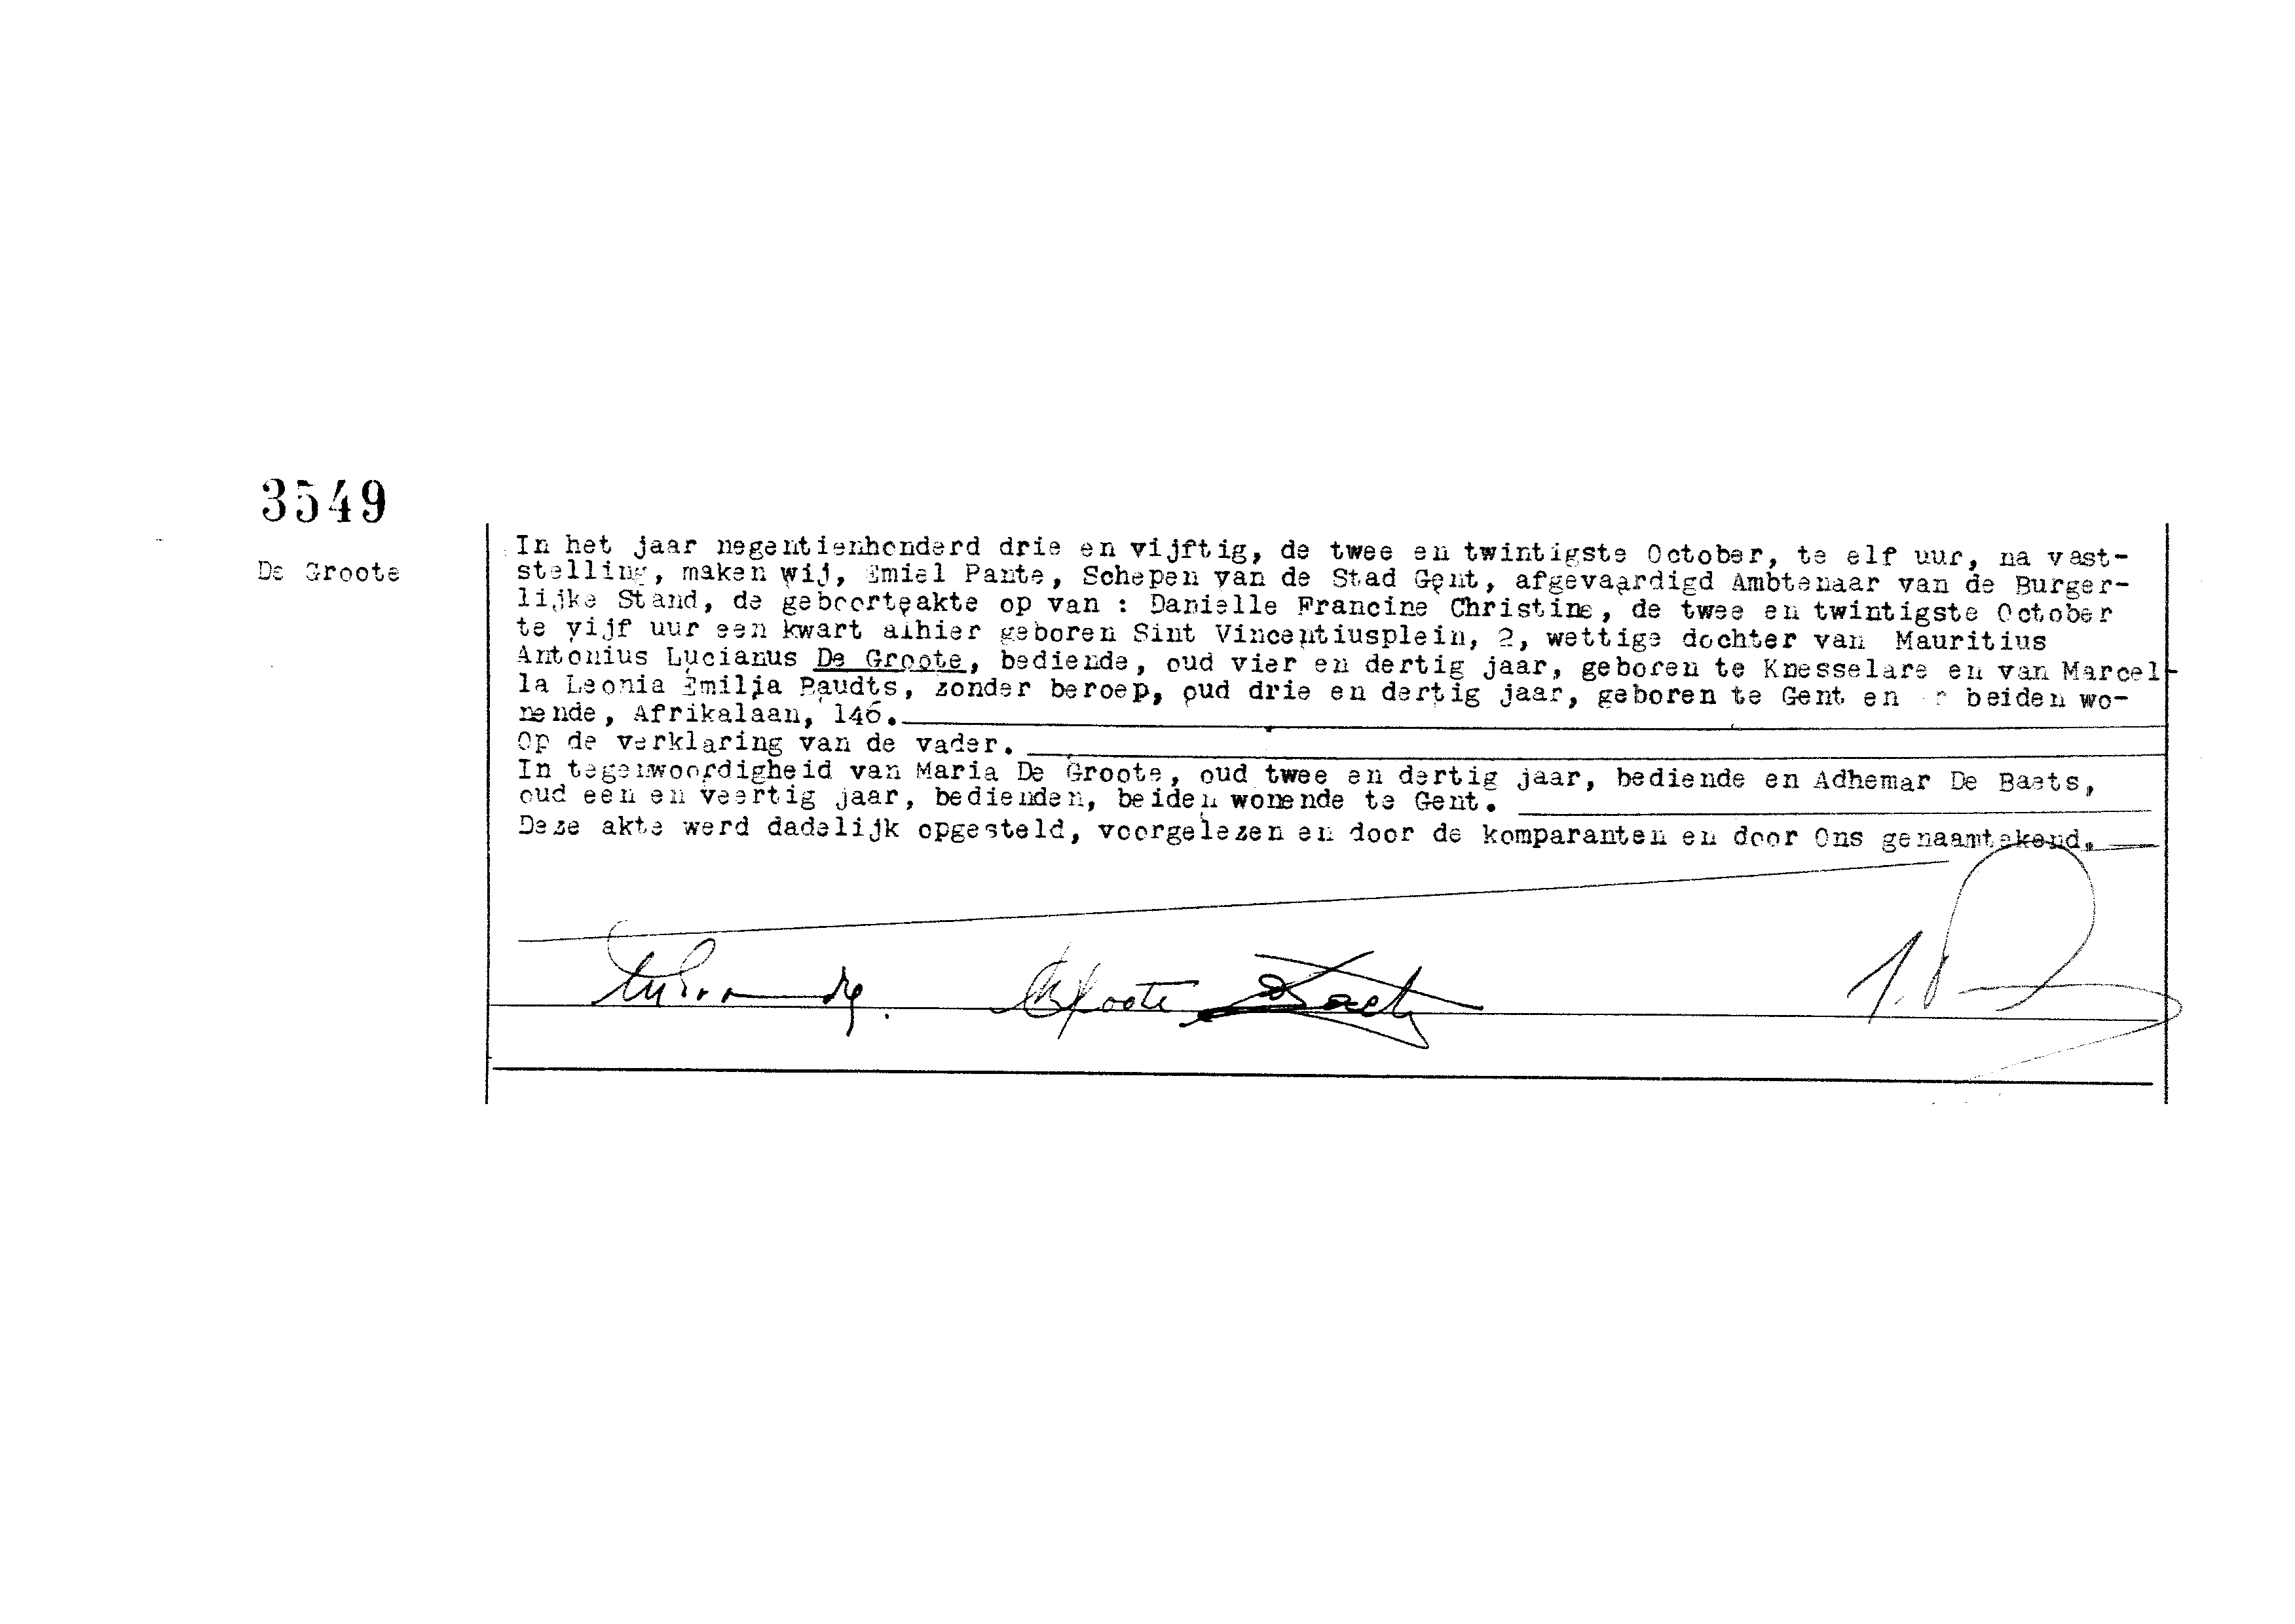 3549
De Groote
In het jaar negentienhonderd drie en vijftig, de twee en twintigste October, te elf uur, na vast-
stelling, maken wij, Emiel Pante, Schepen van de Stad Gent, afgevaardigd Ambtenaar van de Burger-
lijke Stand, de geboorteakte op van : Danielle Francine Christine, de twee en twintigste October
te vijf uur een kwart alhier geboren Sint Vincentiusplein, 2, wettige dochter van Mauritius
Antonius Lucianus De Groote, bediende, oud vier en dertig jaar, geboren te Knesselare en van Marcel-
la Leonia Emilia Paudts, zonder beroep, oud drie en dertig jaar, geboren te Gent en beiden wo-
nende, Afrikalaan, 146.
Op de verklaring van de vader.
In tegenwoordigheid van Maria De Groote, oud twee en dertig jaar, bediende en Adhemar De Baets,
oud een en veertig jaar, bedienden, beiden wonende te Gent.
Deze akte werd dadelijk opgesteld, voorgelezen en door de komparanten en door Ons genaamtekend.